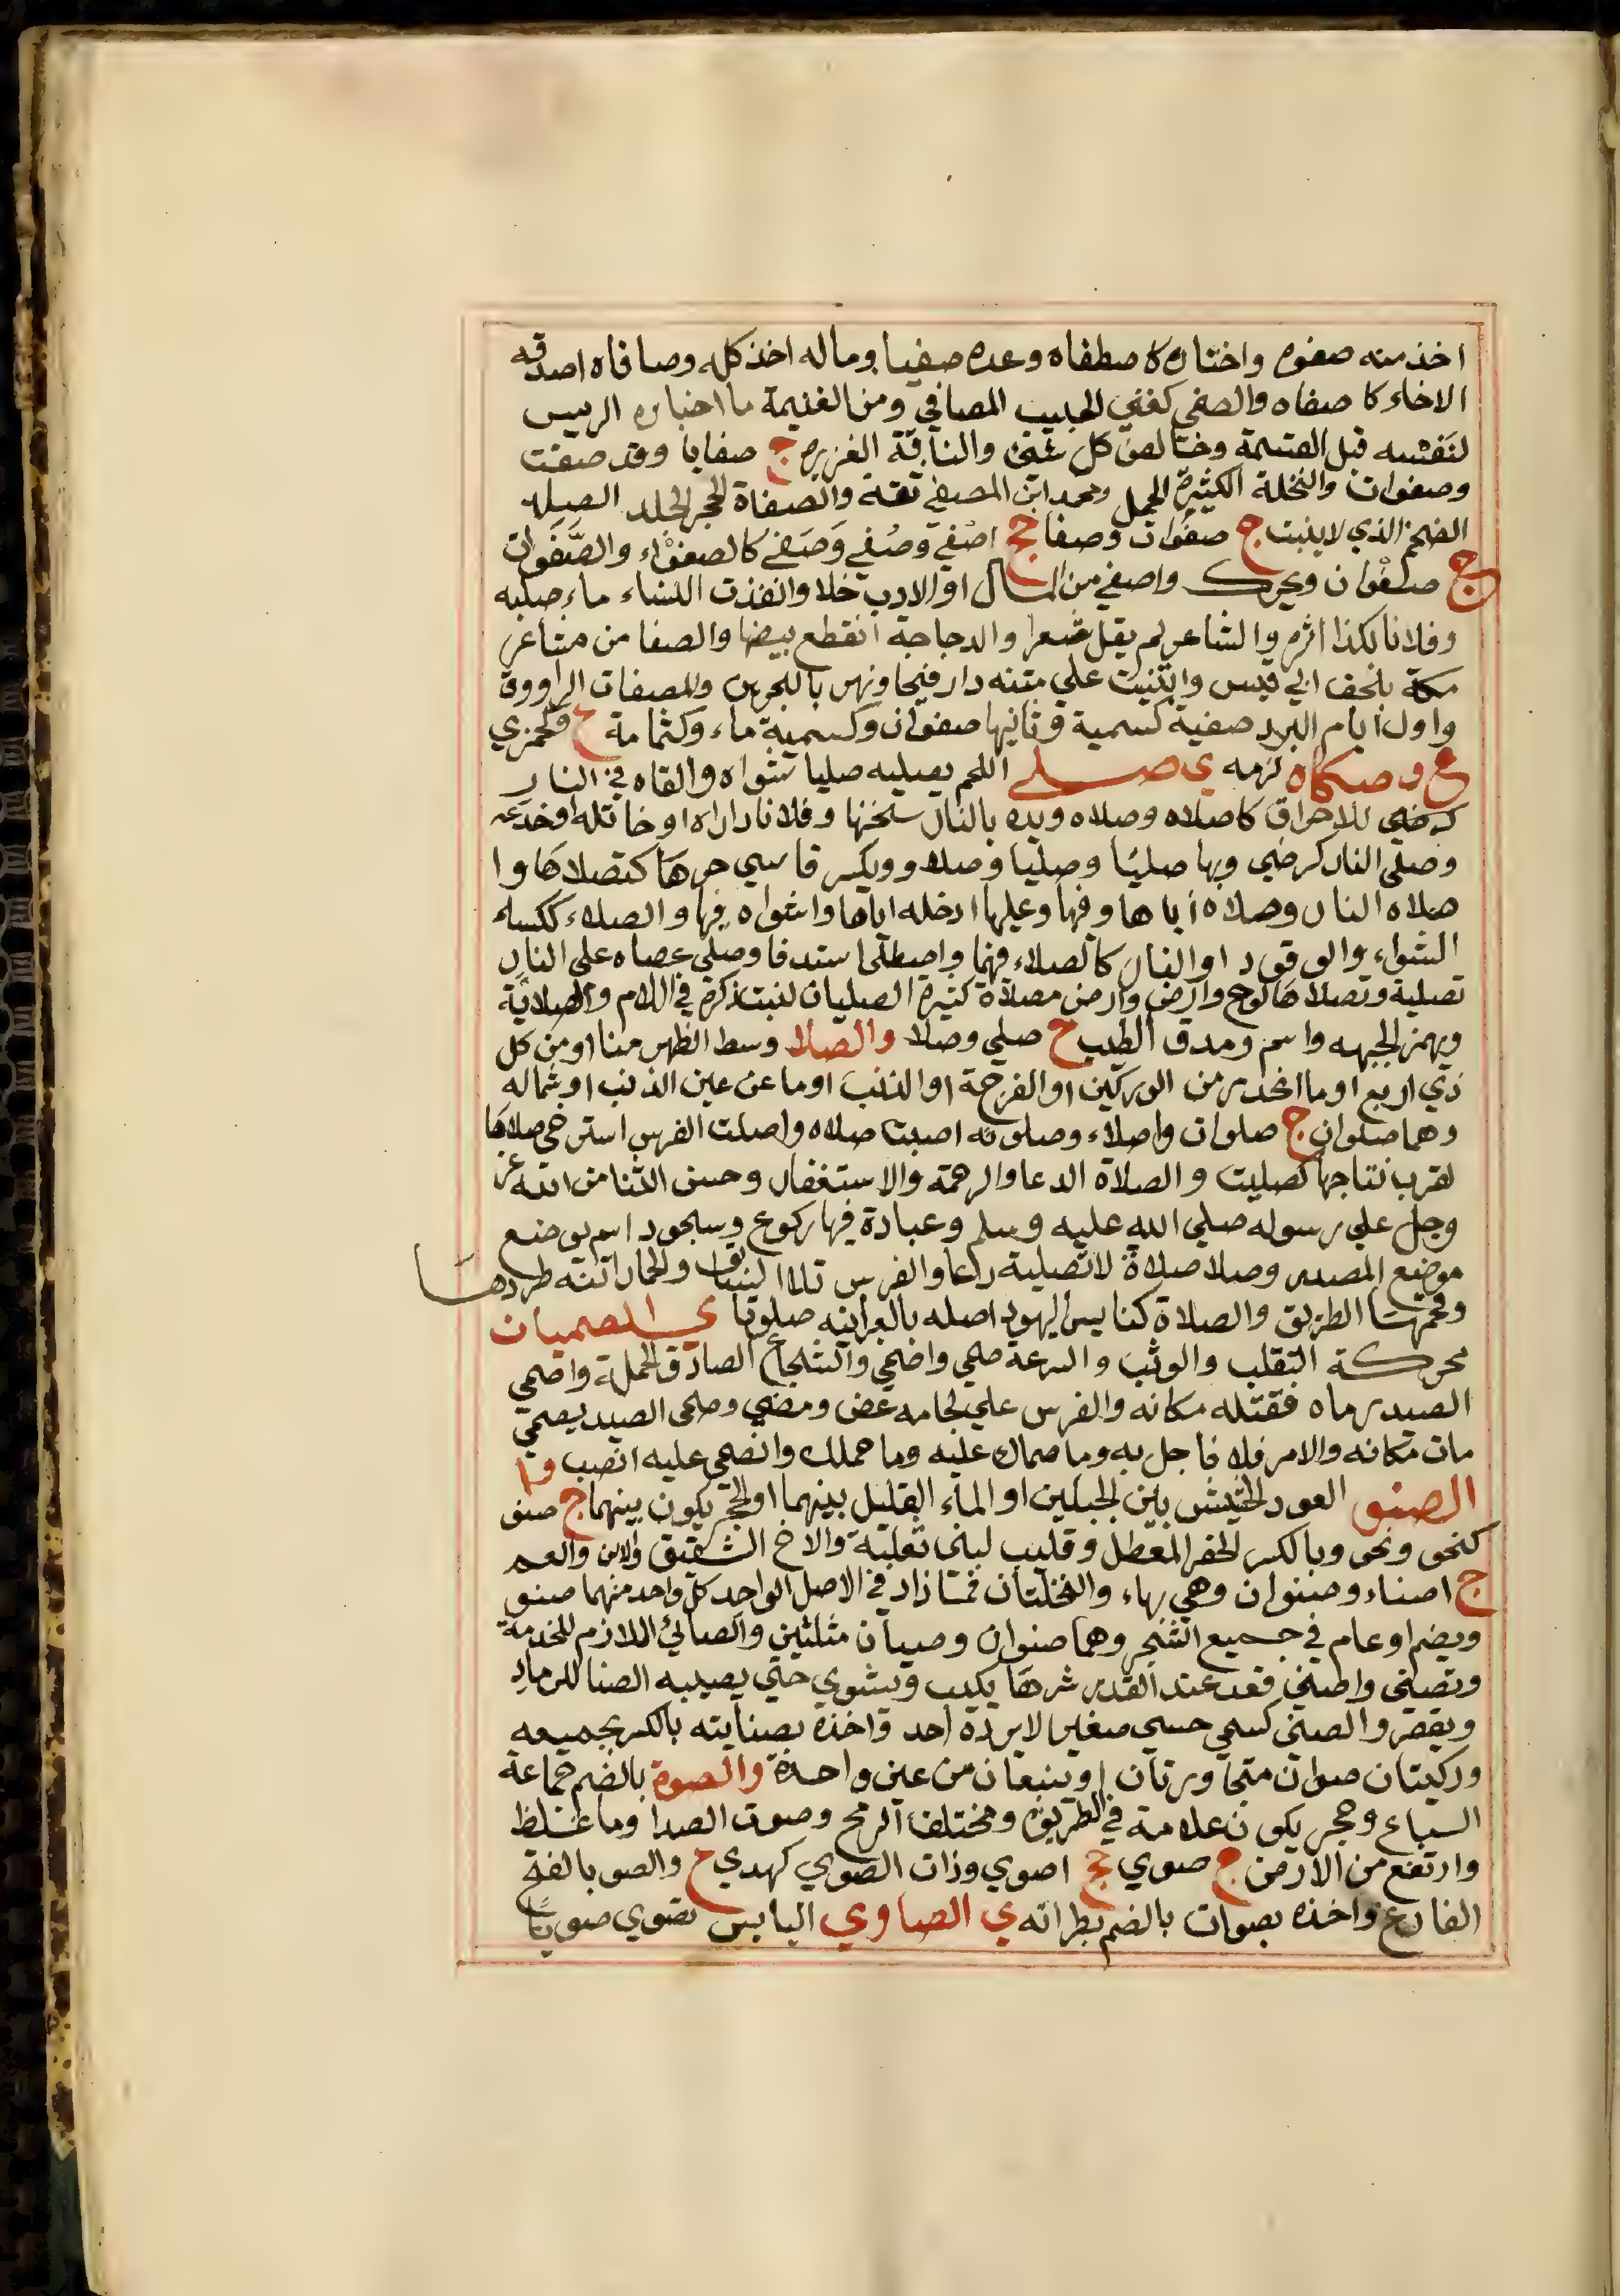 اخذ منه صفوه واختاره كاصطفاه وعده صفيا وماله اخذ كله وصافاه اصدقه
الاخاء كاصفاه والصفي كغني الحبيب المصافي ومن الغنيمة ما اختاره الريس
لنفسه قبل القسمة وخالص كل شئ والناقة الغزيره ج صفايا وقد صفت
وصفوات والنخلة الكثيرة الحمل ومحمد ابن المصفي ثقة والصفاة الحجر الصلد
الضخم الذي لا ينبت ج صفوات وصفا جج اصفي وصفي وصفي كالصفواء والصفوان
ج صفوان ويحرك واصفي من المال او الادب خلا وانفذت النساء ماء صلبه
وفلانا بكذا اثره والشاعر لم يقل شعرا والدجاجة انقطع بيضها والصفا من مشاعر
مكة بلحف ابي قيس وابتنيت علي متنه دار فيحا ونهر بالبحرين والمصفات الراووق
واول ايام البرد صفية كسمية وثانيها صفوان وكسمية ماء وكثمامة ع وكجمزي
ع و صكاه لزمه ي صلي اللحم يصليه صليا شواه والقاه في النار
كرضي للاحراق كاصلاه وصلاه ويده بالنار سخنها وفلانا داراه او خاتله او خدعه
وصلي النار كرضي وبها صليا وصليا وصلاء ويكسر قاسي حرها كتصلاها وا
صلاه النار وصلاه اياها وفيها وعليها ادخله اياها واثواه فيها والصلاء ككساء
الشواء والوقود او النار كالصلاء فيهما واصطلى استدفا وصلي عصاه علي النار
تصلية وتصلاها لوح وارض وارض مصلاة كثيرة الصليان لنبت ذكره في اللام والصلاية
ويهمز الجبهه واسم ومدق الطيب ج صلي وصلا والصلا وسط الظهر منا او من كل
ذي اربع او ما انحدر من الوركين او الفرجة او الذنب او ما عن عين الذنب او شماله
وهما صلوان ج صلوات واصلاء وصلوته اصبت صلاه واصلت الفرس استرخي صلاها
لقرب نتاجها كصليت والصلاة الدعا والرحمة والاستغفار وحسن الثنا من الله عز
وجل علي رسوله صلي الله عليه وسلم وعبادة فيها ركوع وسجود اسم يوضع
موضع المصدر وصلا صلاة لا تصلية دعا والفرس تلا السابق والحمار اتنه طردها
وقحمها الطريق والصلاة كنايس اليهود اصله بالعبرانيه صلوتا ي الصميان
محركة التقلب والوثب والسرعة صمي واضمي والشجاع الصادق الحملة واصمي
الصيد رماه فقتله مكانه والفرس علي لجامه عض ومضي وصمى الصيد يصمي
مات مكانه والامر فلا فاجل به وما صماك عليه وما حملك وانصمى عليه انصب و
الصنو العود الخسيس بين الجبلين او الماء القليل بينهما او الحجر يكون بينهما ج صنو
كنحو ونحو وبالكسر الحفر المعطل وقليب لبني ثعلبة والاخ الشقيق والابن والعم
ج اصناء وصنوان وهي بهاء والنخلتان فما زاد في الاصل الواحد كل واحد منهما صنو
ويضم او عام في جميع الشجر وهما صنوان وصنيان مثلثين والصانئ اللازم للخدمة
وتصنى واصنى قعد عند القدر شرها يكبب ويشوي حتي يصيبه الصنا للرماد
ويقصر والصنى كسمي حسي صغير لا يرده احد واخذه بصنايته بالكسر بجميعه
وركيتان صنوان متجاورتان او تنبعان من عين واحدة والصوة بالضم جماعة
السباع وحجر يكون علامة في الطريق ومختلف الريح وصوت الصدا وما غلظ
وارتفع من الارض ج صوي جج اصوي وذات الصوي كهدي ع والصو بالفتح
الفارغ واخذه بصوات بالضم بطراته ي الصاوي اليابس تصوي صويا